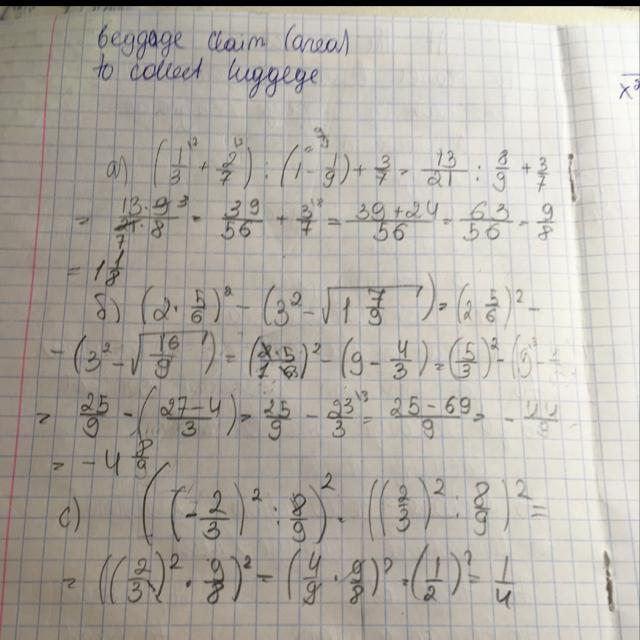 beggage claim (area)
to collect luggege
x²
а) (1/3 + 2/7) : (1 - 1/9) + 3/7 = 13/21 : 8/9 + 3/7
= 13·9/8 = 39/56 + 3/7 = 39+24/56 = 63/56 = 9/8
= 1 1/8
б) (2·5/6)² - (3² - √1 7/9) = (2 5/6)² -
- (3² - √16/9) = ( )² - (9 - 4/3) = (5/3)² -
= 25/9 - (27-4/3) = 25/9 - 23/3 = 25-69/9 = - 44/9
= -4 8/9
с) ((-2/3)² : 8/9)² = ((2/3)² : 8/9)² =
= ((2/3)² · 9/8)² = (4/9 · 9/8)² = (1/2)² = 1/4